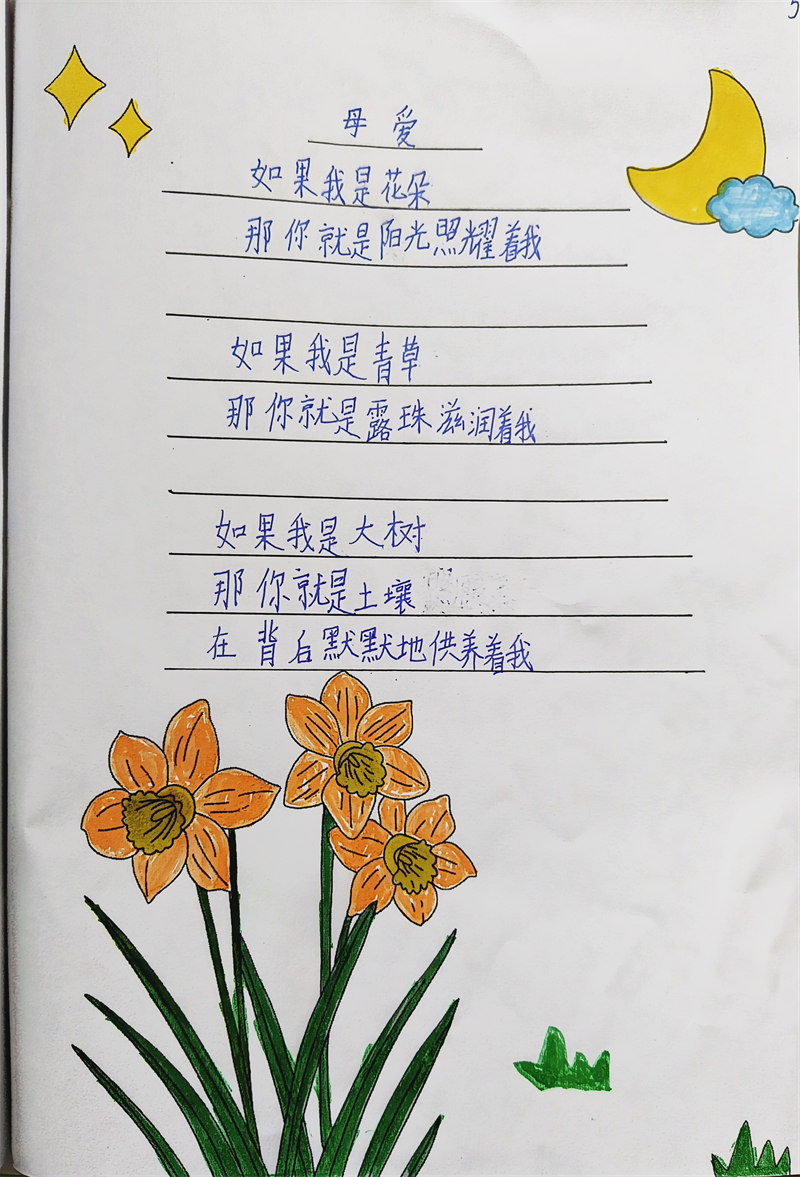 5
母爱
如果我是花朵
那你就是阳光照耀着我
如果我是青草
那你就是露珠滋润着我
如果我是大树
那你就是土壤
在背后默默地供养着我